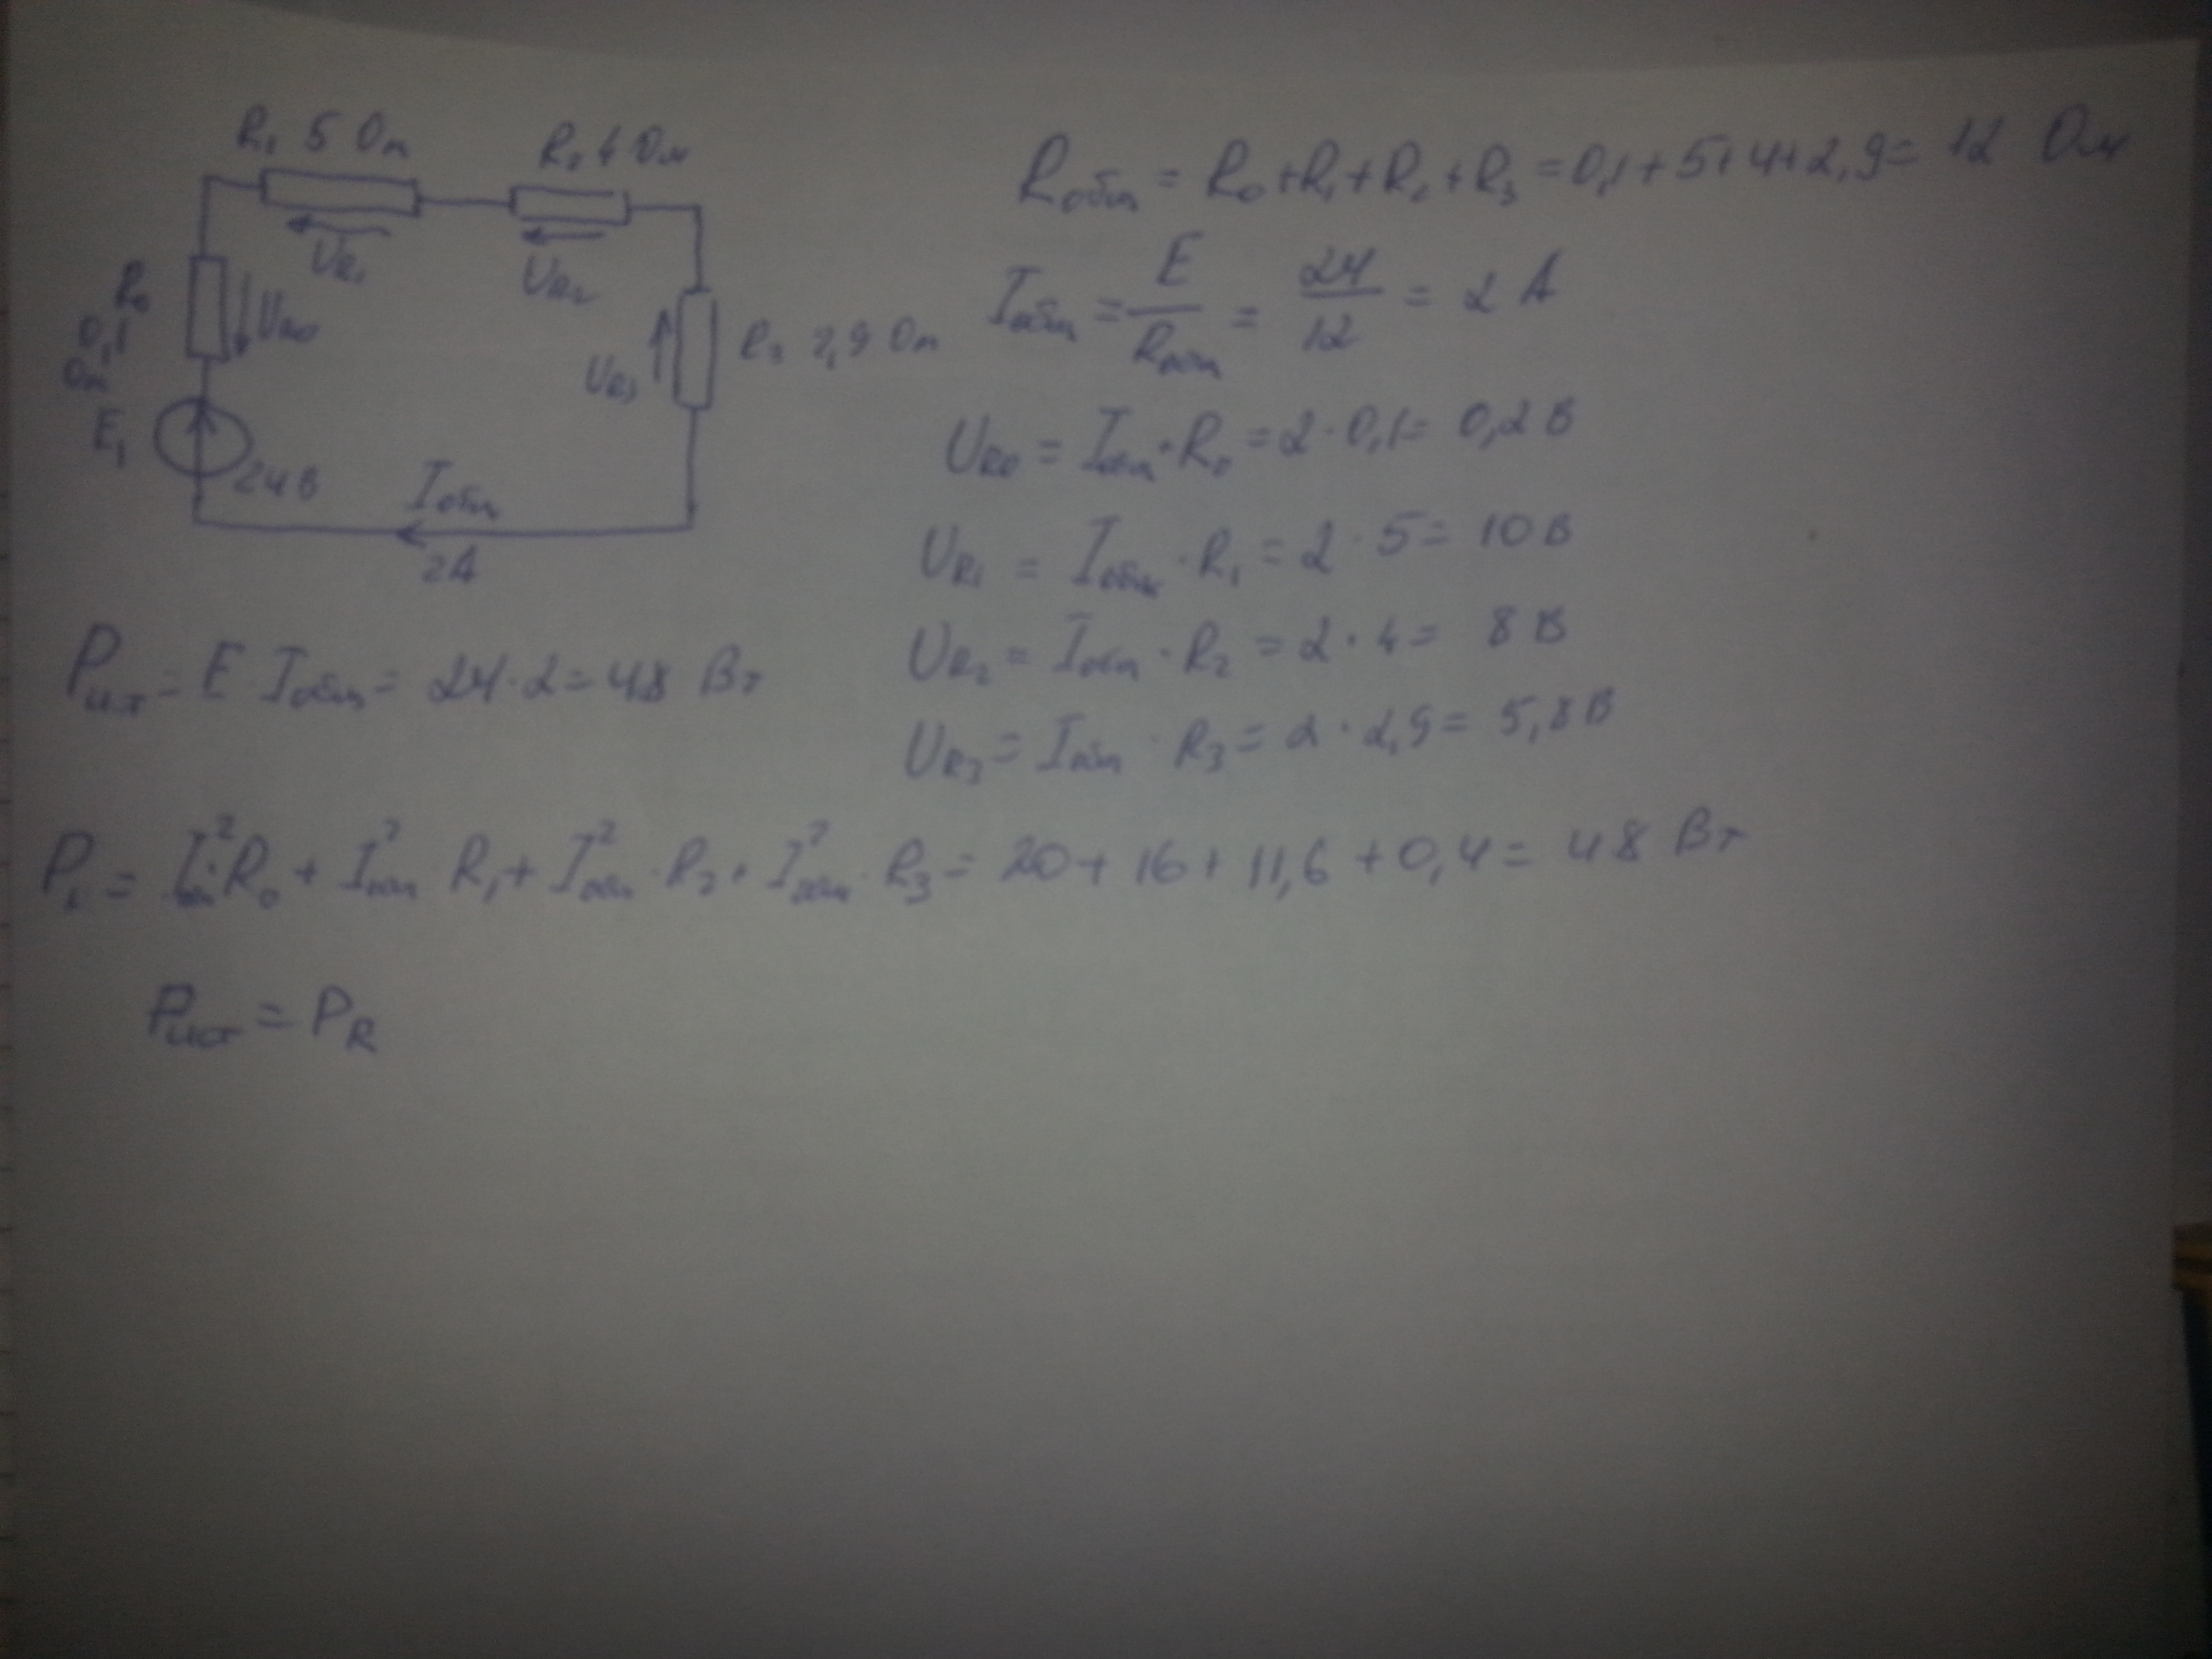 R₁ 5 Ом
R₂ 4 Ом
U_R₁
U_R₂
R₀
0,1
Ом
U_R₀
U_R₃
R₃ 2,9 Ом
E₁
24В
I общ
2А
R общ = R₀ + R₁ + R₂ + R₃ = 0,1 + 5 + 4 + 2,9 = 12 Ом
I общ = E / R общ = 24 / 12 = 2 А
U_R₀ = I общ · R₀ = 2 · 0,1 = 0,2 В
U_R₁ = I общ · R₁ = 2 · 5 = 10 В
U_R₂ = I общ · R₂ = 2 · 4 = 8 В
U_R₃ = I общ · R₃ = 2 · 2,9 = 5,8 В
P ист = E I общ = 24 · 2 = 48 Вт
P_R = I² общ · R₀ + I² общ R₁ + I² общ · R₂ + I² общ · R₃ = 20 + 16 + 11,6 + 0,4 = 48 Вт
P ист = P_R